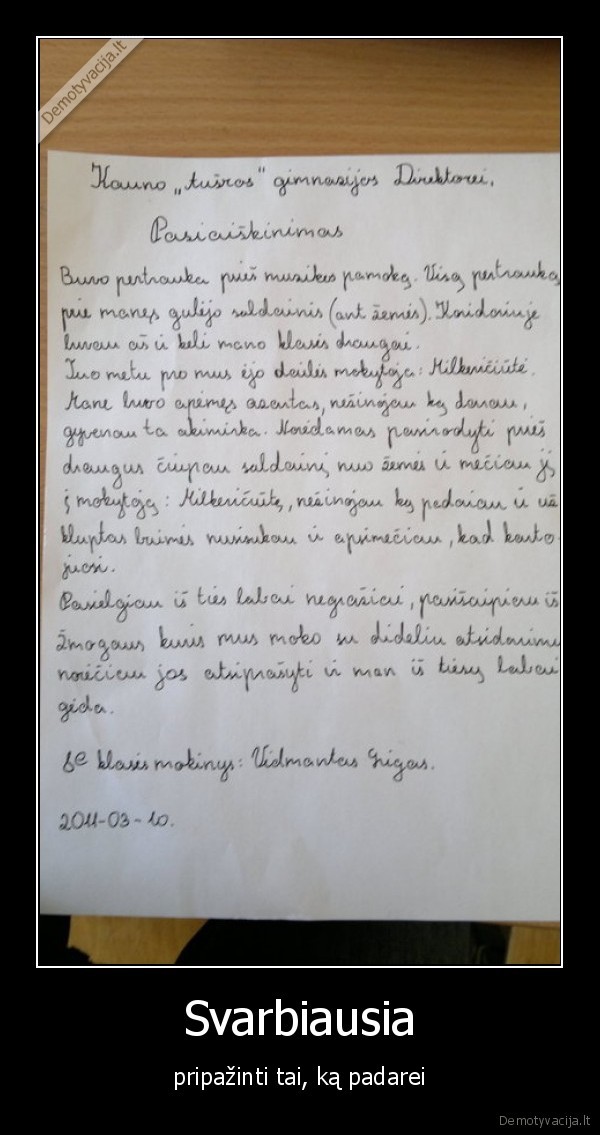 Demotyvacija.lt
Kauno „Aušros" gimnazijos Direktorei,
Pasiaiškinimas
Buvo pertrauka prieš muzikos pamoką. Visą pertrauką
prie manęs gulėjo saldainis (ant žemės). Koridoriuje
buvau aš ir keli mano klasės draugai.
Tuo metu pro mus ėjo dailės mokytoja: Milkevičiūtė.
Mane buvo apėmęs azartas, nežinojau ką darau,
gyvenau ta akimirka. Norėdamas pasirodyti prieš
draugus čiupau saldainį nuo žemės ir mečiau jį
į mokytoją: Milkevičiūtę, nežinojau ką padariau ir už
kluptas baimės nusisukau ir apsimečiau, kad karto-
juosi.
Pasielgiau iš ties labai negražiai, pasišaipiau iš
žmogaus kuris mus moko su dideliu atsidavimu
norėčiau jos atsiprašyti ir man iš tiesų labai
gėda.
6e klasės mokinys: Vidmantas Gigas.
2011-03-10.
Svarbiausia
pripažinti tai, ką padarei
Demotyvacija.lt